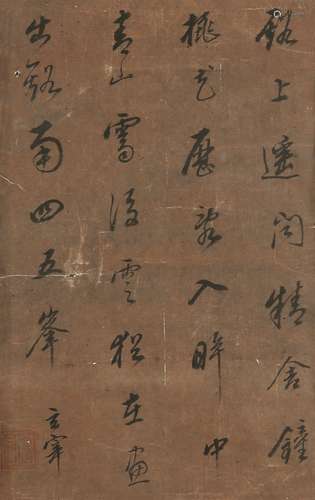 谿上遙聞精舍鐘
桃花歷入眸中
青山霽後雲猶在畫
出谿南四五峯
玄宰